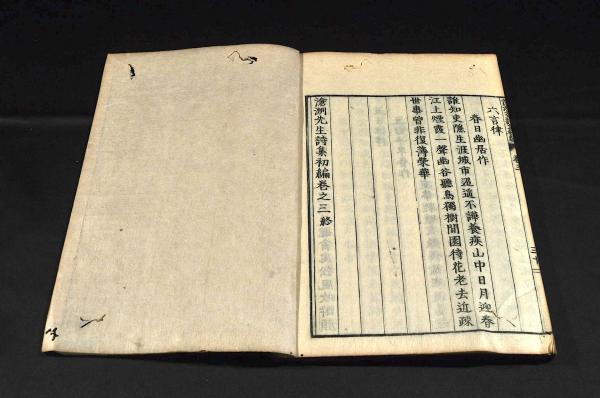 六言律
春日幽居作
誰知吏隱生涯城市逍遥不譁養疾山中日月迎春
江上煙霞一聲幽谷聽鳥獨樹閒園待花老去近疎
世事曾非復薄榮華
滄洲先生詩集初編卷之三終